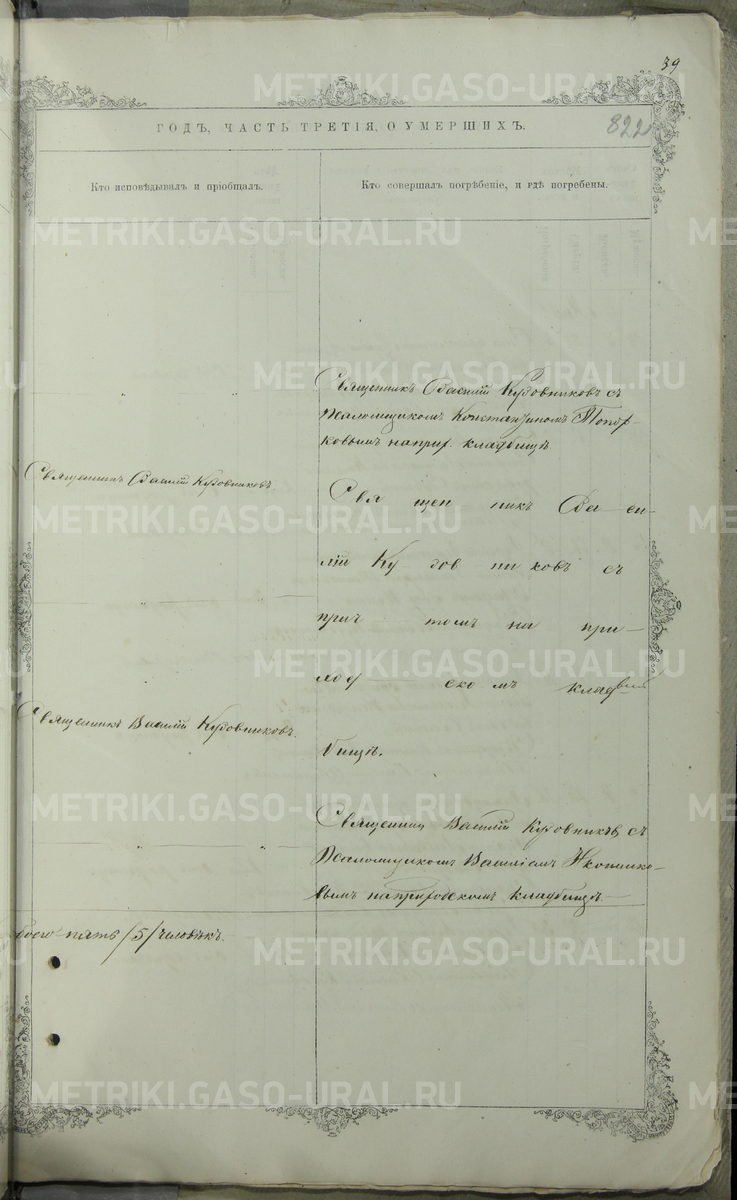 39
822
ГОДЪ, ЧАСТЬ ТРЕТІЯ, О УМЕРШИХЪ.
Кто исповѣдывалъ и пріобщалъ.
Кто совершалъ погрѣбеніе, и гдѣ погребены.
Священникъ Василій Кудовниковъ съ
Псаломщикомъ Константиномъ Топор-
ковымъ на прих. кладбищѣ
Священникъ Василій Кудовниковъ.
Свя щен никъ Ва си-
лій Ку дов ни ковъ съ
прич томъ на при-
ход ско мъ клад
бищѣ.
Священникъ Василій Кудовниковъ.
Священник Василій Кудовниковъ съ
Псаломщикомъ Василіемъ
вымъ на приходскомъ кладбищѣ.
пять /5/ человѣкъ.
METRIKI.GASO-URAL.RU